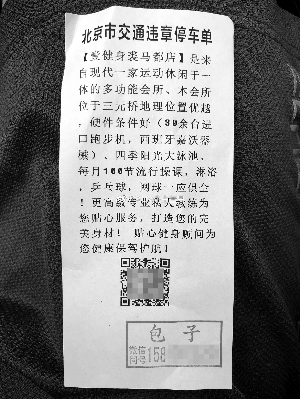 北京市交通违章停车单
【爱健身裘马都店】是来
自现代一家运动休闲于一
体的多功能会所、本会所
位于三元桥地理位置优越
,硬件条件好(80余台进
口跑步机,西班牙嘉沃器
械)、四季阳光大泳池、
每月160节流行操课,淋浴
、乒乓球,网球一应俱全
!更高级专业私人教练为
您贴心服务,打造您的完
美身材! 贴心健身顾问为
您健康保驾护航!
包 子
微信
同号 158